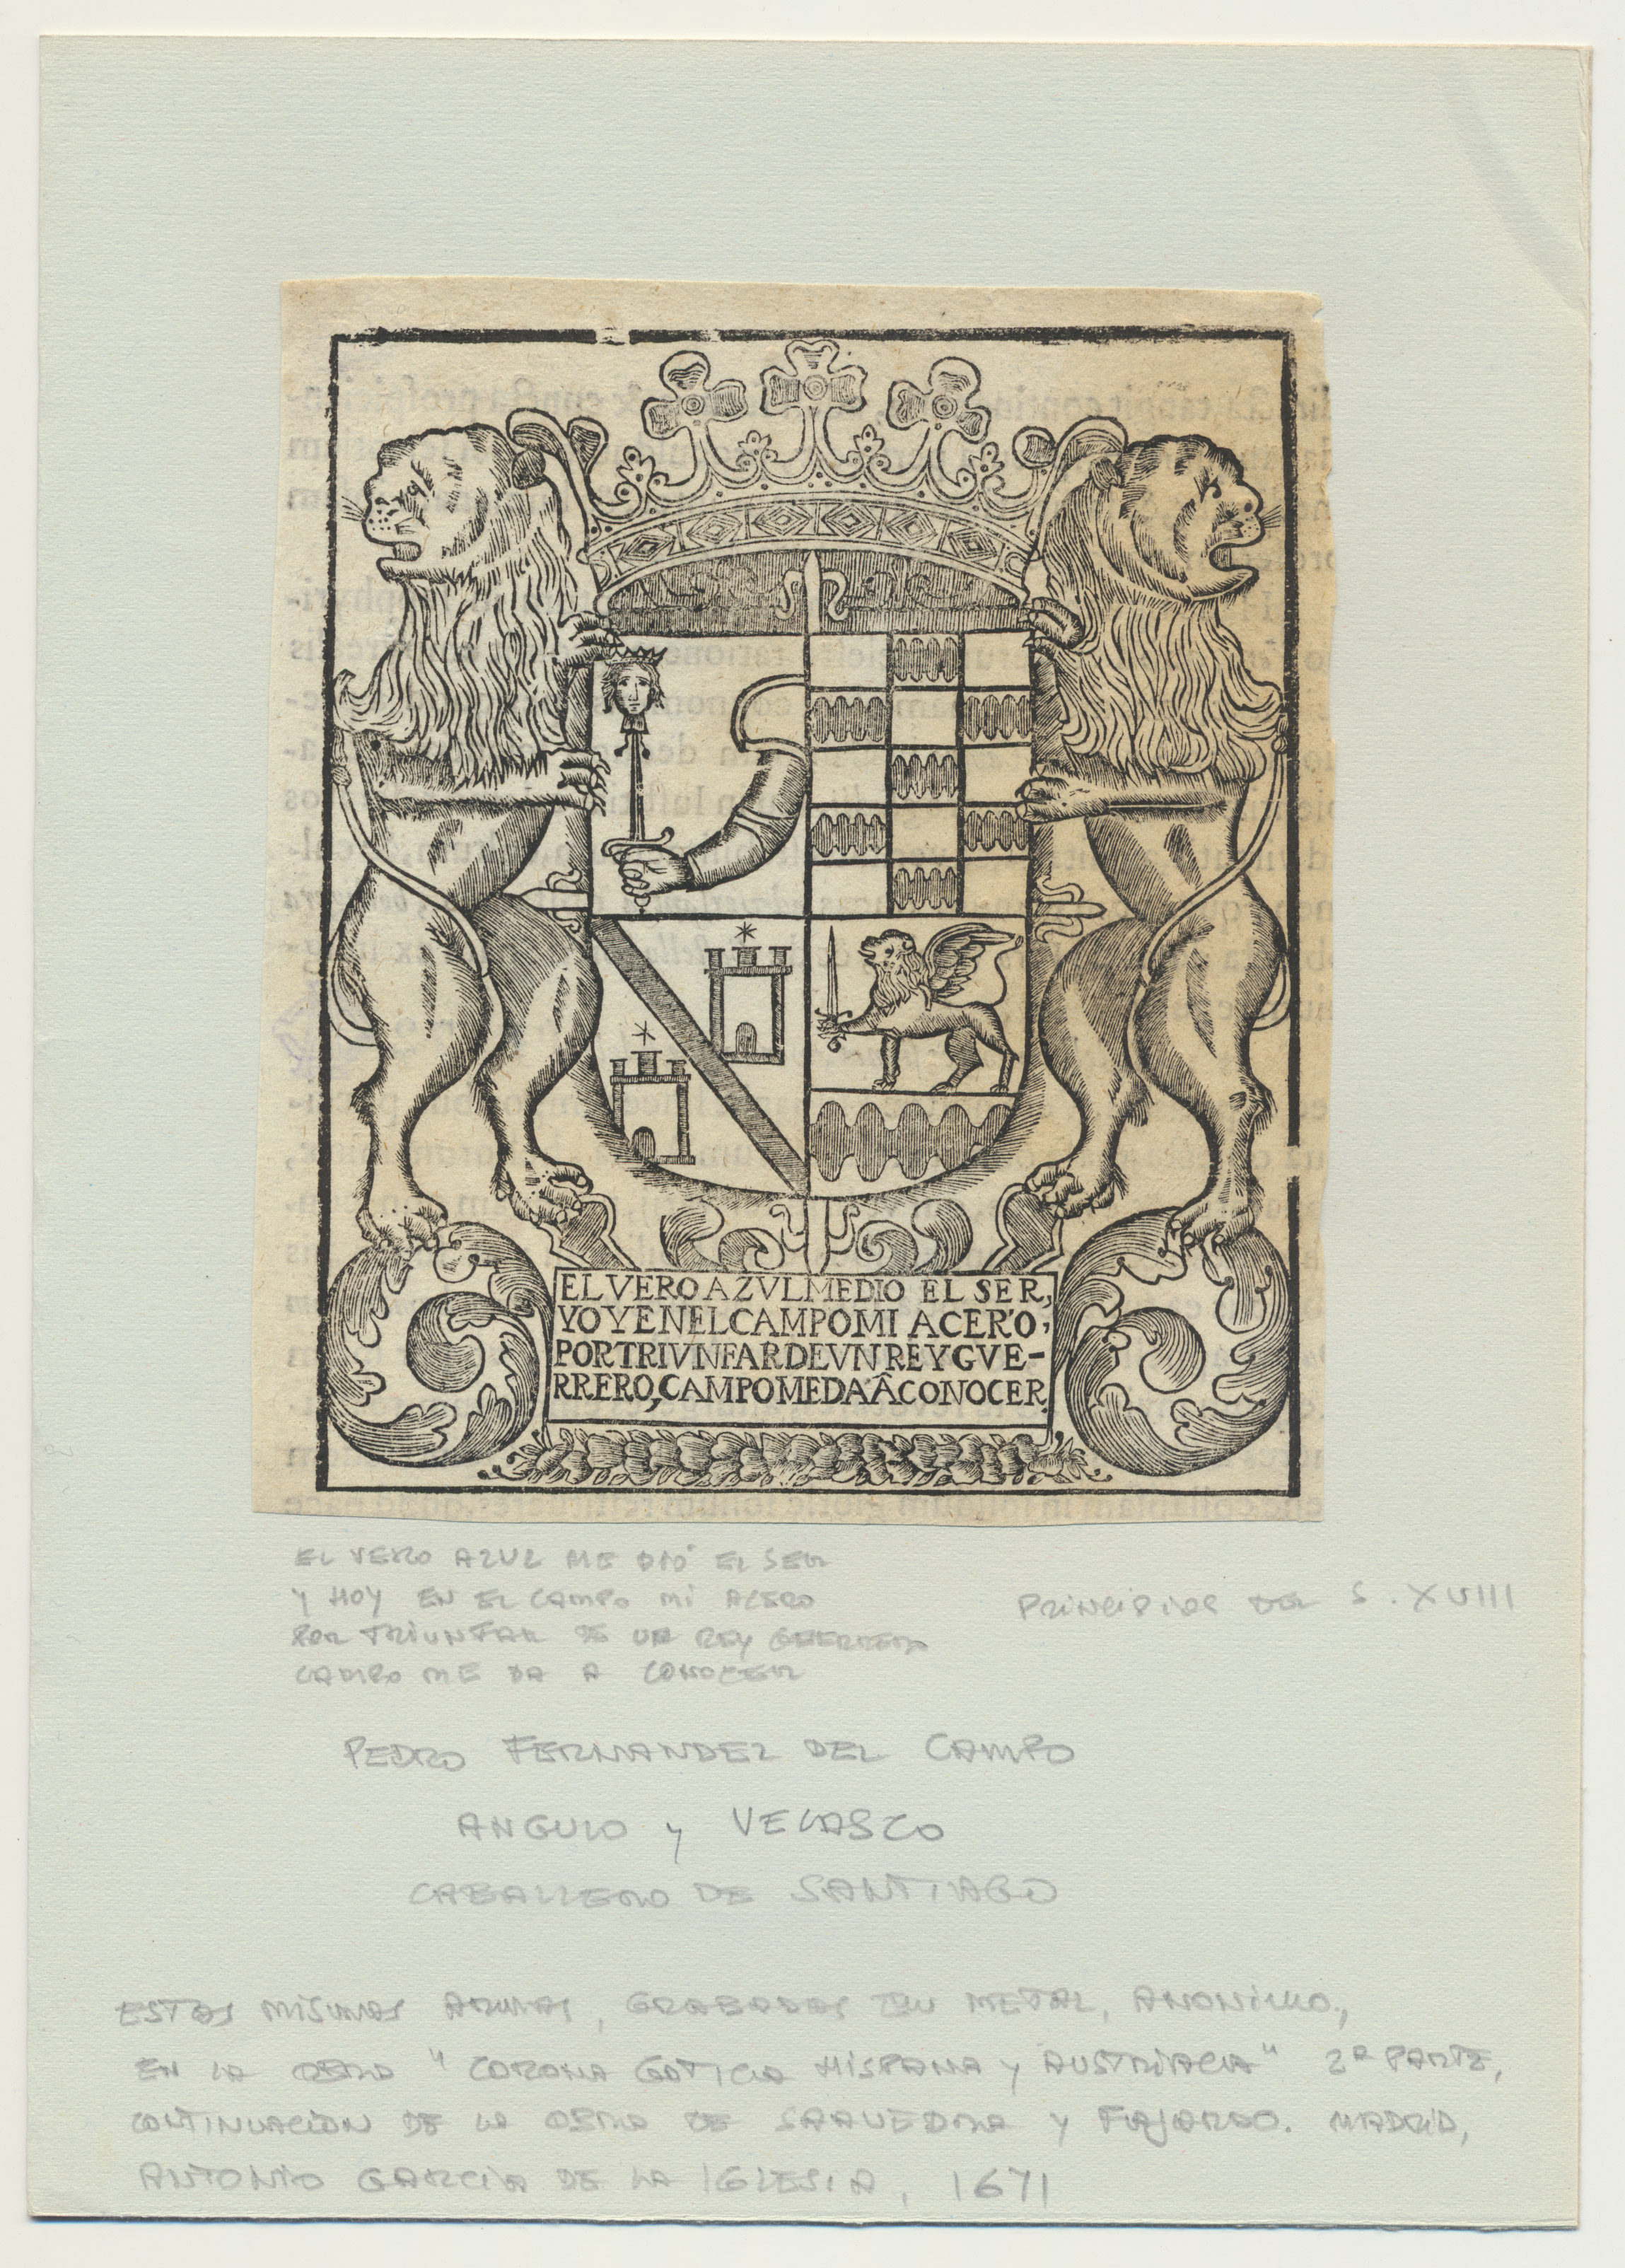 EL VERO AZVL MEDIO EL SER,
YOY EN EL CAMPO MI ACERO,
POR TRIVNFAR DE VN REY GVE-
RRERO, CAMPO ME DA Â CONOCER.
EL VERO AZUL ME DIÓ EL SER
Y HOY EN EL CAMPO MI ACERO
POR TRIUNFAR DE UN REY GUERRERO
CAMPO ME DA A CONOCER
PRINCIPIOS DEL S. XVIII
PEDRO FERNANDEZ DEL CAMPO
ANGULO Y VELASCO
CABALLERO DE SANTIAGO
ESTAS MISMAS ARMAS, GRABADAS EN METAL, ANONIMO,
EN LA OBRA "CORONA GOTICA HISPANA Y AUSTRIACA" 2ª PARTE,
CONTINUACION DE LA OBRA DE SAAVEDRA Y FAJARDO. MADRID,
ANTONIO GARCIA DE LA IGLESIA, 1671